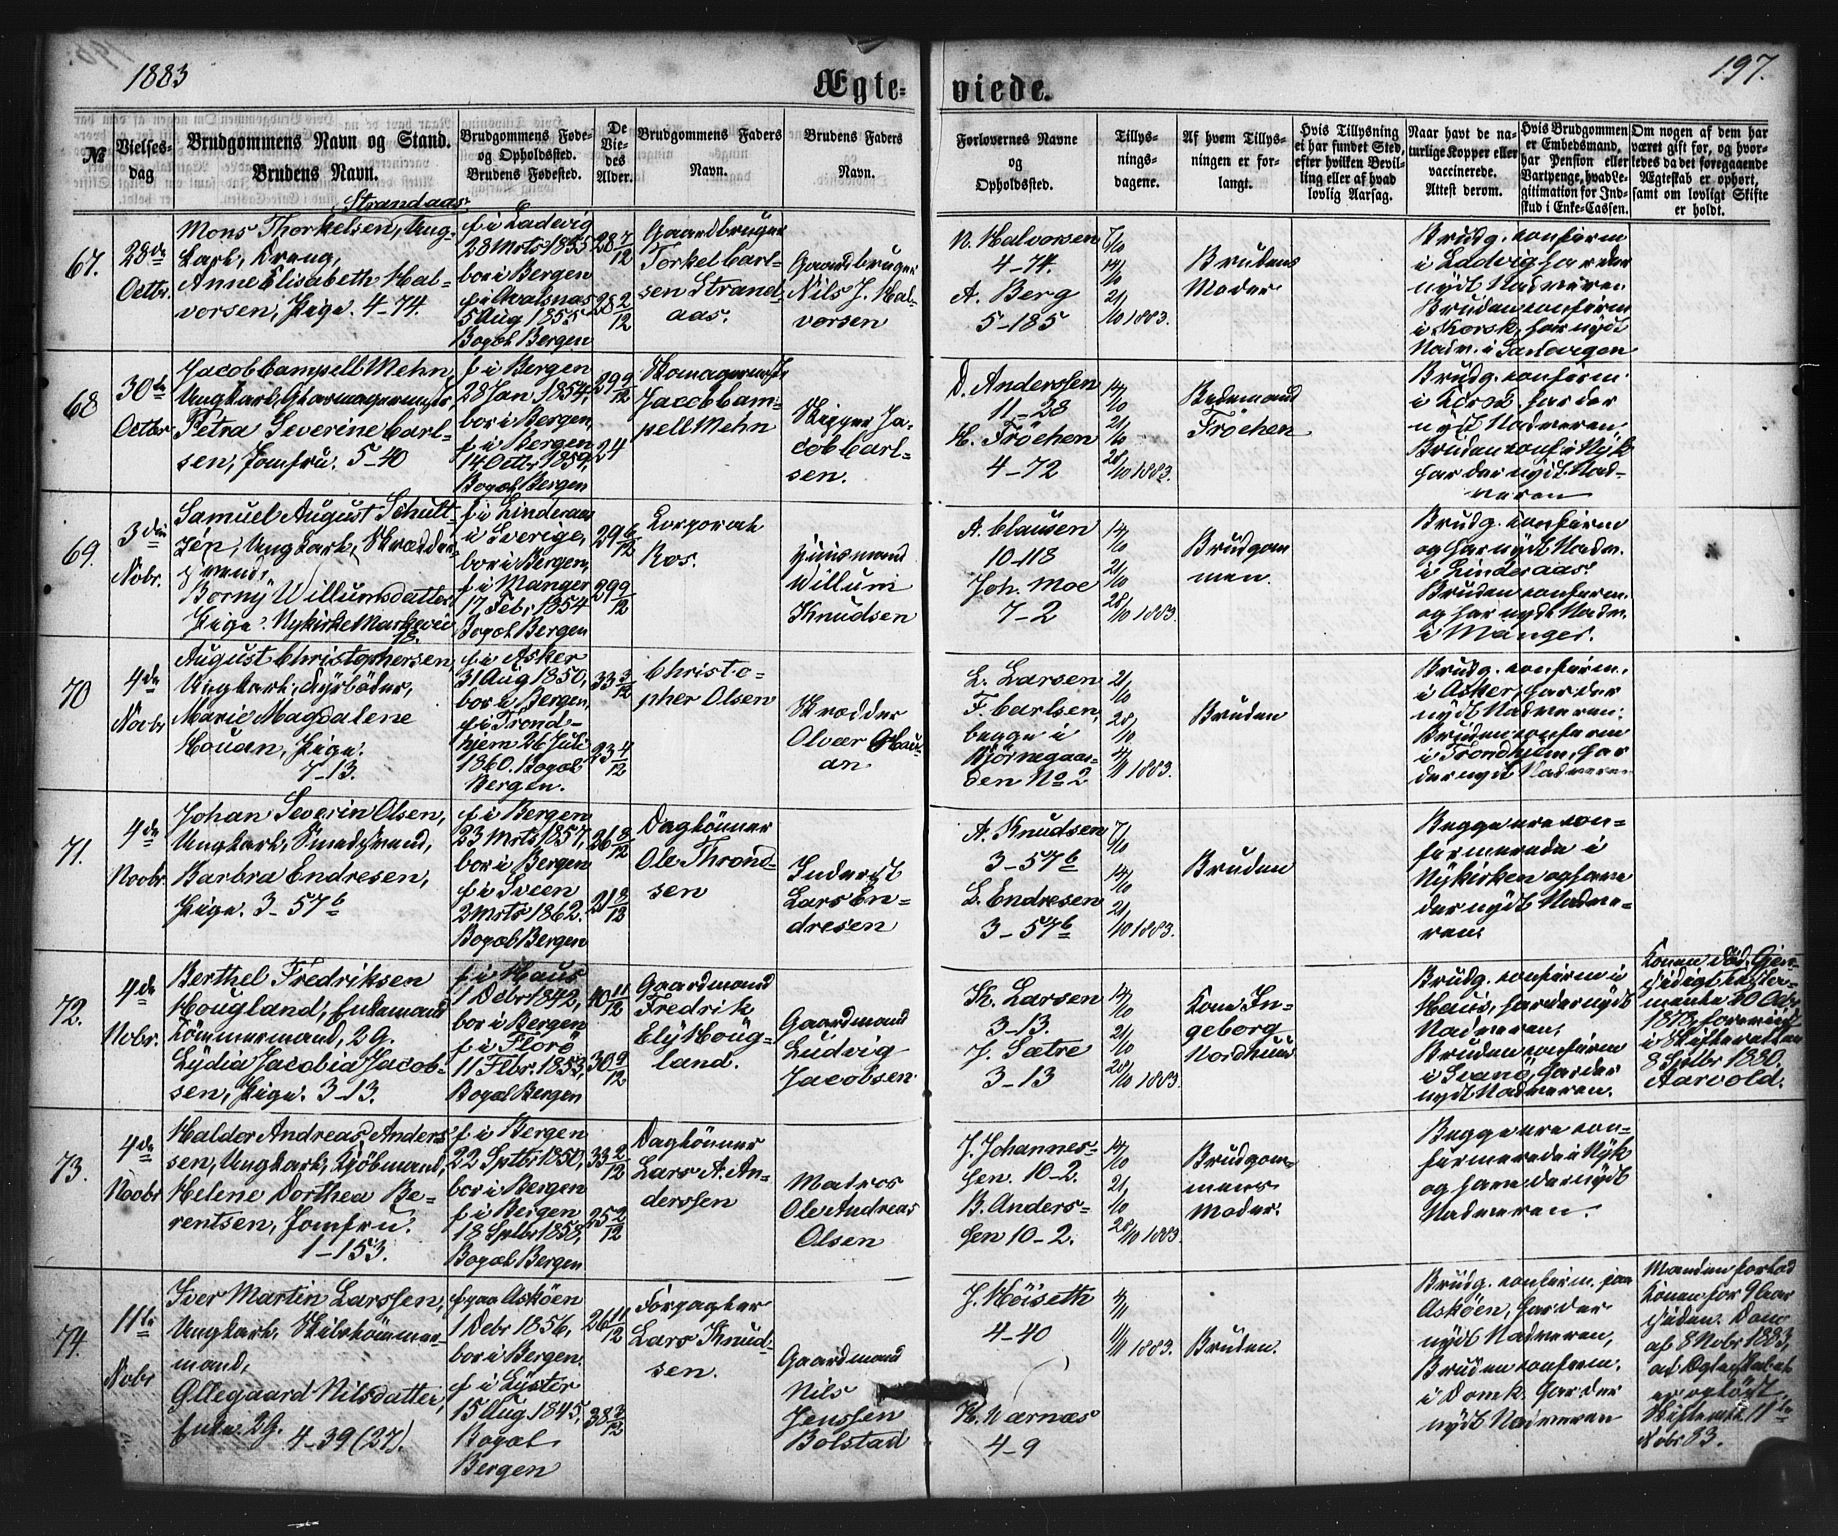 1883
Ægte-
viede.
197.
№
Vielses-
dag
Brudgommens Navn og Stand.
Brudens Navn.
Brudgommens Føde-
og Opholdssted.
Brudens Fødested.
De
Vie-
des
Alder.
Brudgommens Faders
Navn.
Brudens Faders
Navn.
Forlovernes Navne
og
Opholdssted.
Tillys-
nings-
dagene.
Af hvem Tillys-
ningen er for-
langt.
Hvis Tillysning
ei har fundet Sted,
efter hvilken Bevil-
ling eller af hvad
lovlig Aarsag.
Naar havt de na-
turlige Kopper eller
vaccinerede.
Attest derom.
Hvis Brudgommen
er Embedsmand,
har Pension eller
Vartpenge, hvad Le-
gitimation for Ind-
skud i Enke-Cassen.
Om nogen af dem har
været gift før, og hvor-
ledes da det foregaaende
Ægteskab er ophørt,
samt om lovligt Skifte
er holdt.
67.
28de
Octbr.
Strandaas
Mons Thorkelsen, Ung-
karl, Dreng,
Anne Elisabeth Hal-
vorsen, Pige. 4-74.
f i Ladvig
28 Mrts 1855
bor i Bergen
f i Avalsnæs
5 Aug 1855
Bopæl Bergen
28 7/12
28 2/12
Gaardbruger
Torkel Carl-
sen Strand-
aas.
Gaardbruger
Nils J. Hal-
vorsen
N. Halvorsen
4-74.
A. Berg
5-185
7/10
14/10
21/10 1883.
Brudens
Moder
Brudg. confirm
i Ladvig har der
nydt Nadveren
Bruden confirm
i Korsk, har nydt
Nadv. i Sandvigen
68
30te
Octbr
Jacob Campell Mehn,
Ungkarl, Skomagermester,
Petra Severine Carl-
sen, Jomfru. 5-40
f i Bergen
28 Jan 1854,
bor i Bergen,
f i Bergen
14 Octbr 1859,
Bopæl Bergen
29 9/12
24
Skomagermester
Jacob Cam-
pell Mehn
Skipper Ja-
cob Carl-
sen.
D. Anderssen
11-28
H. Fröchen
4-72
14/10
21/10
28/10 1883.
Bedemand
Fröchen
Brudg. confirm.
i Korsk, har der
nydt Nadveren.
Bruden conf i Nyk
har der nydt Nad-
veren
69.
3die
Nobr.
Samuel August Schult-
zén, Ungkarl, Skrædder-
svend,
Borny Willumsdatter
Pige. Nykirke Margrevei
f i Linderaas
i Sverige,
bor i Bergen,
f i Manger
17 Febr 1854
Bopæl Bergen
29 6/12
29 9/12
Corporal
Ros.
Huusmand
Willum
Knudsen
A. Clausen
10-118
Joh. Moe
7-2
14/10
21/10
28/10 1883.
Brudgom
men.
Brudg. confirm
og har nydt Nadv.
i Linderaas.
Bruden confirm.
og har nydt Nadv.
i Manger.
70
4de
Nobr
August Christophersen,
Ungkarl, Fyrböder,
Marie Magdalene
Houan, Pige.
7-13.
f i Asker
31 Aug 1850,
bor i Bergen,
f i Trond-
hjem 26 Juli
1860. Bopæl
Bergen.
33 3/12
23 4/12
Christo-
pher Olsen
Skrædder
Olver Hou-
an
L. Larsen
F. Carlsen,
begge i
Bjørnegaar-
den No 2
21/10
28/10
4/11 1883.
Bruden
Brudg. confirm.
i Asker, har der
nydt Nadveren.
Bruden confirm
i Trondhjem, har
der nydt Nadveren
71.
4de
Novbr
Johan Severin Olsen,
Ungkarl, Smedsvend,
Barbra Endresen,
Pige. 3-57b
f i Bergen
23 Mrts 1857,
bor i Bergen
f i Sveen
2 Mrts 1862.
Bopæl Bergen
26 8/12
21 8/12
Daglönner
Ole Thrond-
sen
Inderst
Lars En-
dresen
A. Knudsen
3-57b
L. Endresen
3-57b
7/10
14/10
21/10 1883.
Bruden
Begge ere con-
firmerede i
Nykirken og have
der nydt Nadve-
ren.
72.
4de
Nobr.
Berthel Fredriksen
Hougland, Enkemand
Tömmermand, 2g.
Lydia Jacobia Jacob-
sen, Pige. 3-13.
f i Haus
1 Debr 1842,
bor i Bergen
f i Florö
11 Febr 1853,
Bopæl Bergen
40 11/12
30 9/12
Gaardmand
Fredrik
Ely Houg-
land.
Gaardmand
Ludvig
Jacobsen
K. Larsen
3-13.
J. Sætre
3-13
14/10
21/10
28/10 1883.
Kone In-
geborg
Nordhuus
Brudg. confirm i
Haus, har der nydt
Nadveren,
Bruden confirm
i Svanö, har der
nydt Nadveren.
Konen död. Gjen-
sidigt Testa-
mente
1878 forevist
i Skifteretten
8 Sptbr 1880.
Aarvold.
73.
4de
Novbr
Halder Andreas Anders-
sen, Ungkarl, Kjöbmand,
Helene Dorthea Be-
rentsen, Jomfru.
1-153.
f i Bergen
22 Sptbr 1850,
bor i Bergen
f i Bergen
18 Sptbr 1858,
Bopæl Bergen
33 2/12
25 2/12
Daglönner
Lars A. An-
derssen
Matros
Ole Andreas
Olsen
J. Johannes-
sen. 10-2.
B. Anders-
sen 10-2.
14/10
21/10
28/10 1883
Brudgom-
mens
Moder.
Begge ere con-
firmerede i Nyk
og have der nydt
Nadveren.
74.
11te
Nobr
Iver Martin Larssen,
Ungkarl, Skibstömmer-
mand,
Ollegaard Nilsdatter,
Enke. 2g. 4-39 (27).
f paa Asköen
1 Debr 1856,
bor i Bergen.
f i Lyster
15 Aug 1845,
Bopæl
Bergen
26 11/12
38 3/12
Forpagter
Lars Knud-
sen.
Gaardmand
Nils
Jenssen
Bolstad
J. Höiseth
4-40
K. Nærnæs
4-9
4/11
11/11 1883.
Bruden.
Brudg. confirm. paa
Asköen, har der
nydt Nadveren,
Bruden confirm.
i Domk, har der
nydt Nadveren
Manden forlod
Konen for 9 Aar
siden. Dom
af 8 Nobr 1883,
at Ægteskabet
er oplöst.
11te
Nobr 83.